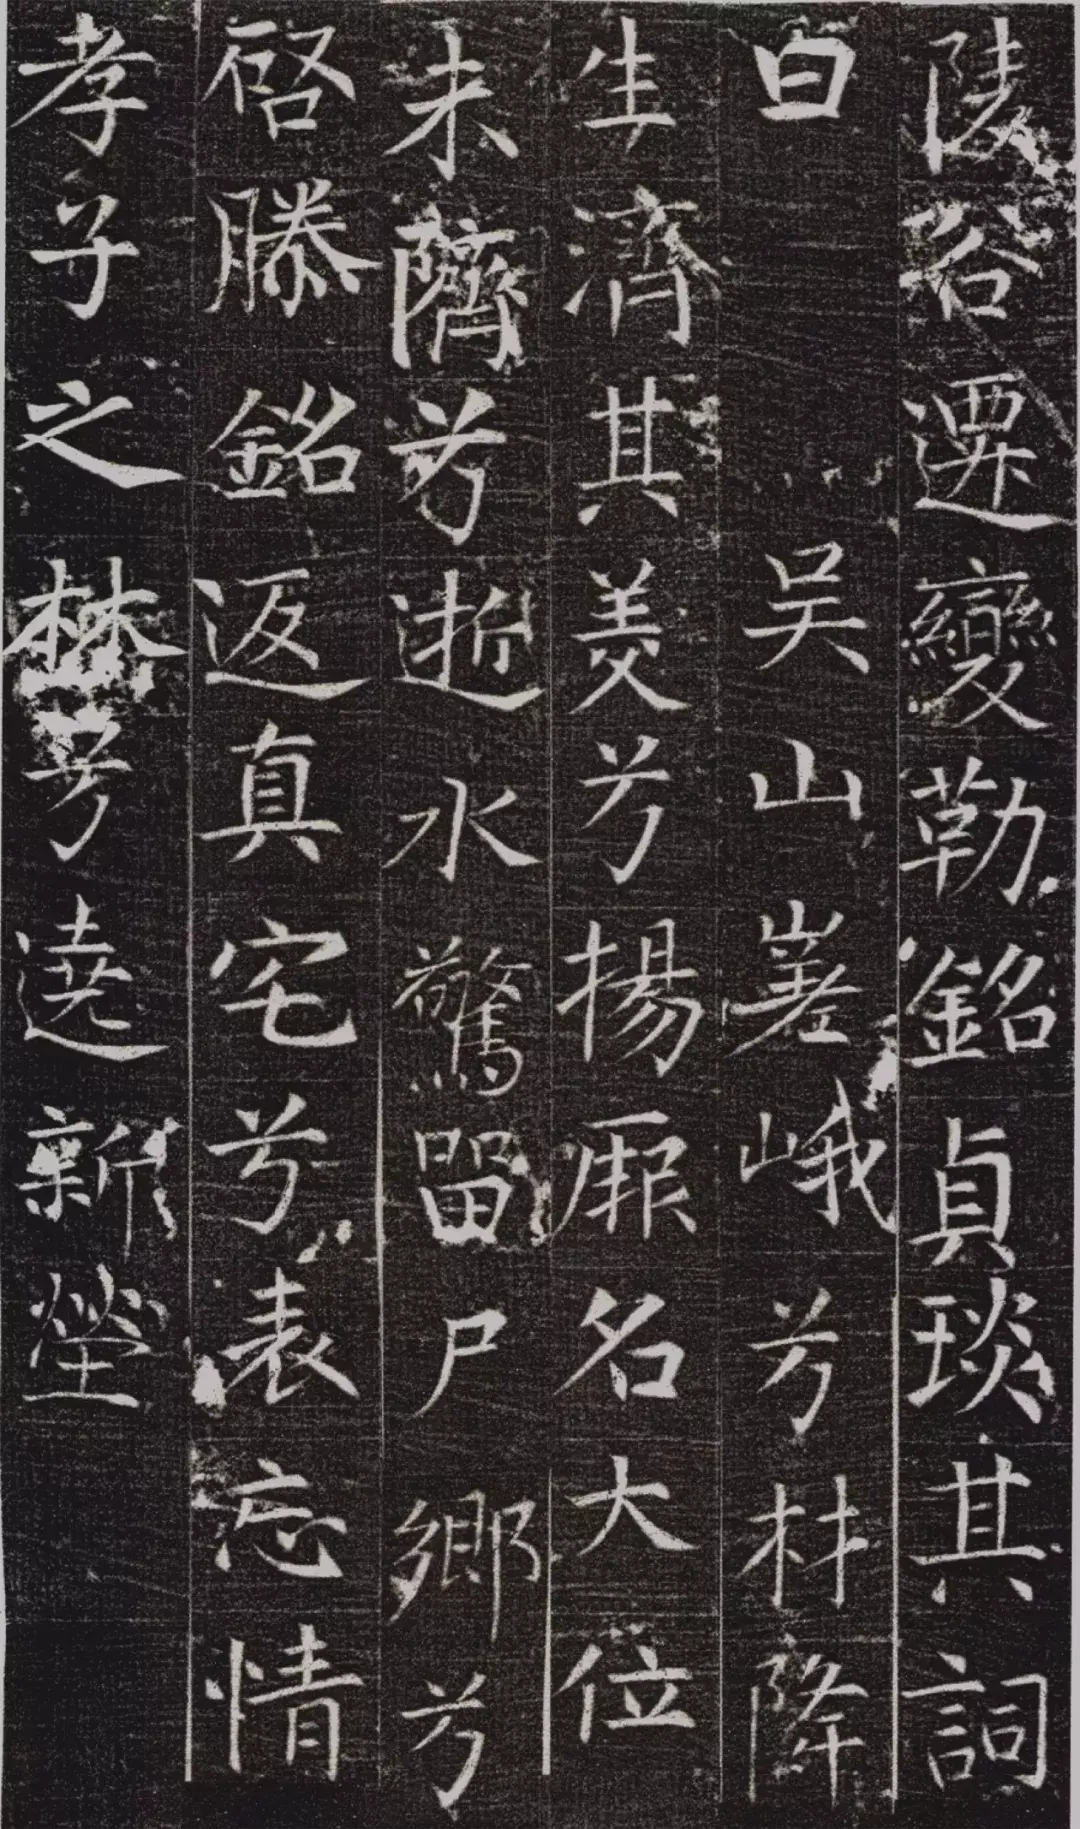 陵谷遷變勒銘貞琰其詞
曰吴山嵳峨兮材降
生濟其美兮揚厥名大位
未隮兮逝水驚留尸鄉兮
啓滕銘返真宅兮表忘情
孝子之兮遶新塋